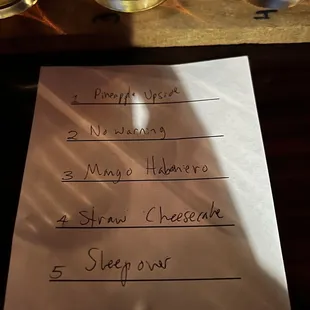 1 Pineapple Upside
2 No warning
3 Mango Habanero
4 Straw Cheesecake
5 Sleepover
4